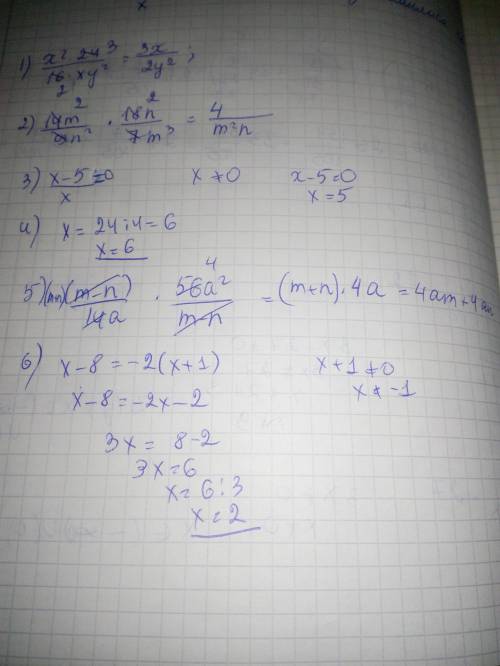 x
1) x² · 24³ / 16₂ · xy² = 3x / 2y² ;
2) 14m² / 9n³ · 18n² / 7m³ = 4 / m²n
3) x-5=0 / x x≠0 x-5=0
x=5
4) x = 24:4=6
x=6
5) (m+n)(m-n) / 14a · 56a² 4 / m-n = (m+n)·4a = 4am+4an
6) x-8=-2(x+1) x+1≠0
x-8=-2x-2 x≠-1
3x= 8-2
3x=6
x=6:3
x=2